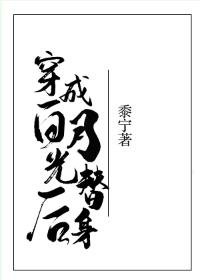 穿成白月光替身后
黍宁著